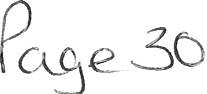 Page 30